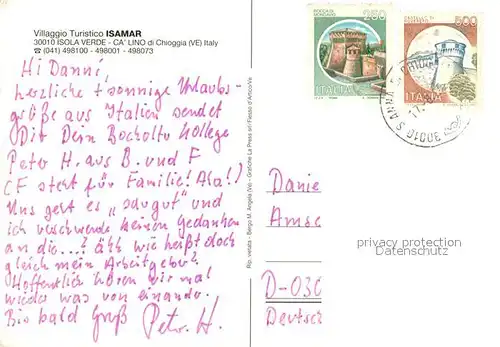 Villaggio Turistico ISAMAR
30010 ISOLA VERDE - CA' LINO di Chioggia (VE) Italy
☎ (041) 498100 - 498001 - 498073
Hi Danni,
herzliche + sonnige Urlaubs-
grüße aus Italien sendet
Dir Dein Bocholter Kollege
Peter H. aus B. und F
(F steht für Familie! Aha!)
Uns geht es "saugut" und
ich verschwende keinen Gedanken
an die...? ähh wie heißt doch
gleich mein Arbeitgeber?
Hoffentlich hören wir mal
wieder was von einander.
Bis bald Gruß Peter H.
Rip. vietata - Bergo M. Angela (Ve) - Grafiche La Press srl-Fiesso d'Artico/Ve
ROCCA DI
MONDAVIO
250
ITALIA
500
ITALIA
30010 S. ANNA
Danie
Amse
D-030
Deutsch
privacy protection
Datenschutz